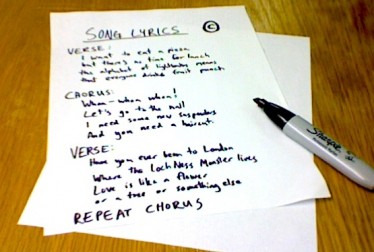 SONG LYRICS ©
VERSE:
I want to eat a pizza
but there's no time for lunch
the alphabet of lightbulbs means
that everyone drinks fruit punch
CHORUS:
When - when when!
Let's go to the mall
I need some new suspenders
And you need a haircut
VERSE:
Have you ever been to London
Where the Loch Ness Monster lives
Love is like a flower
or a tree or something else
REPEAT CHORUS
Sharpie